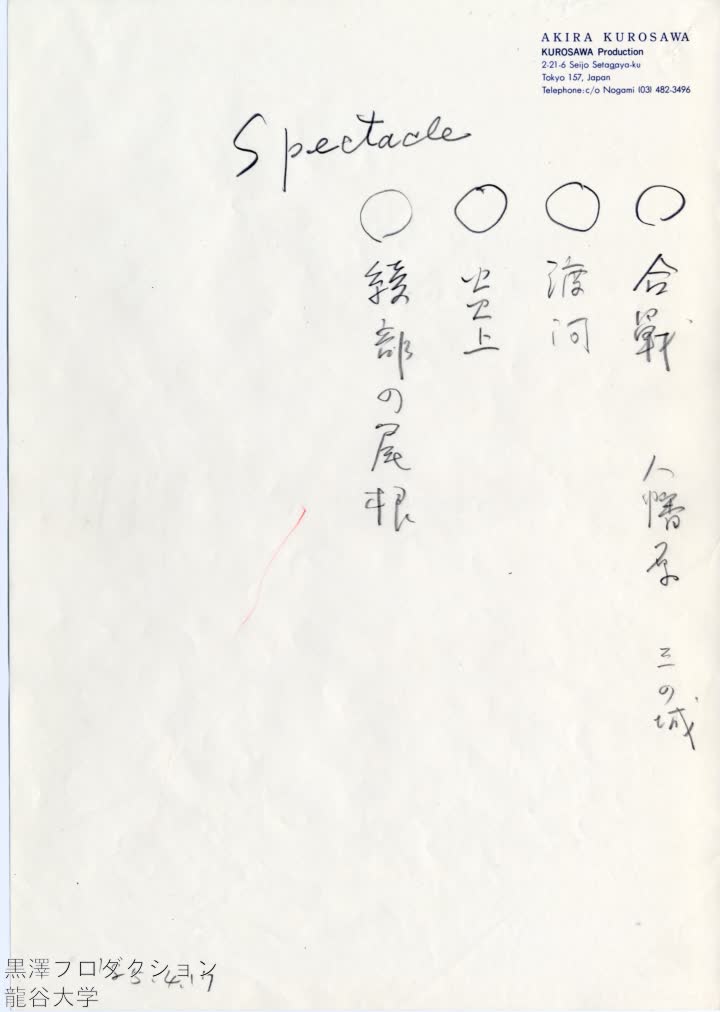 AKIRA KUROSAWA
KUROSAWA Production
2-21-6 Seijo Setagaya-ku
Tokyo 157, Japan
Telephone:c/o Nogami (03) 482-3496
Spectacle
○ 合戰 八幡原 三の城
○ 渡河
○ 炎上
○ 綾部の尾根
黒澤プロダクション
龍谷大学